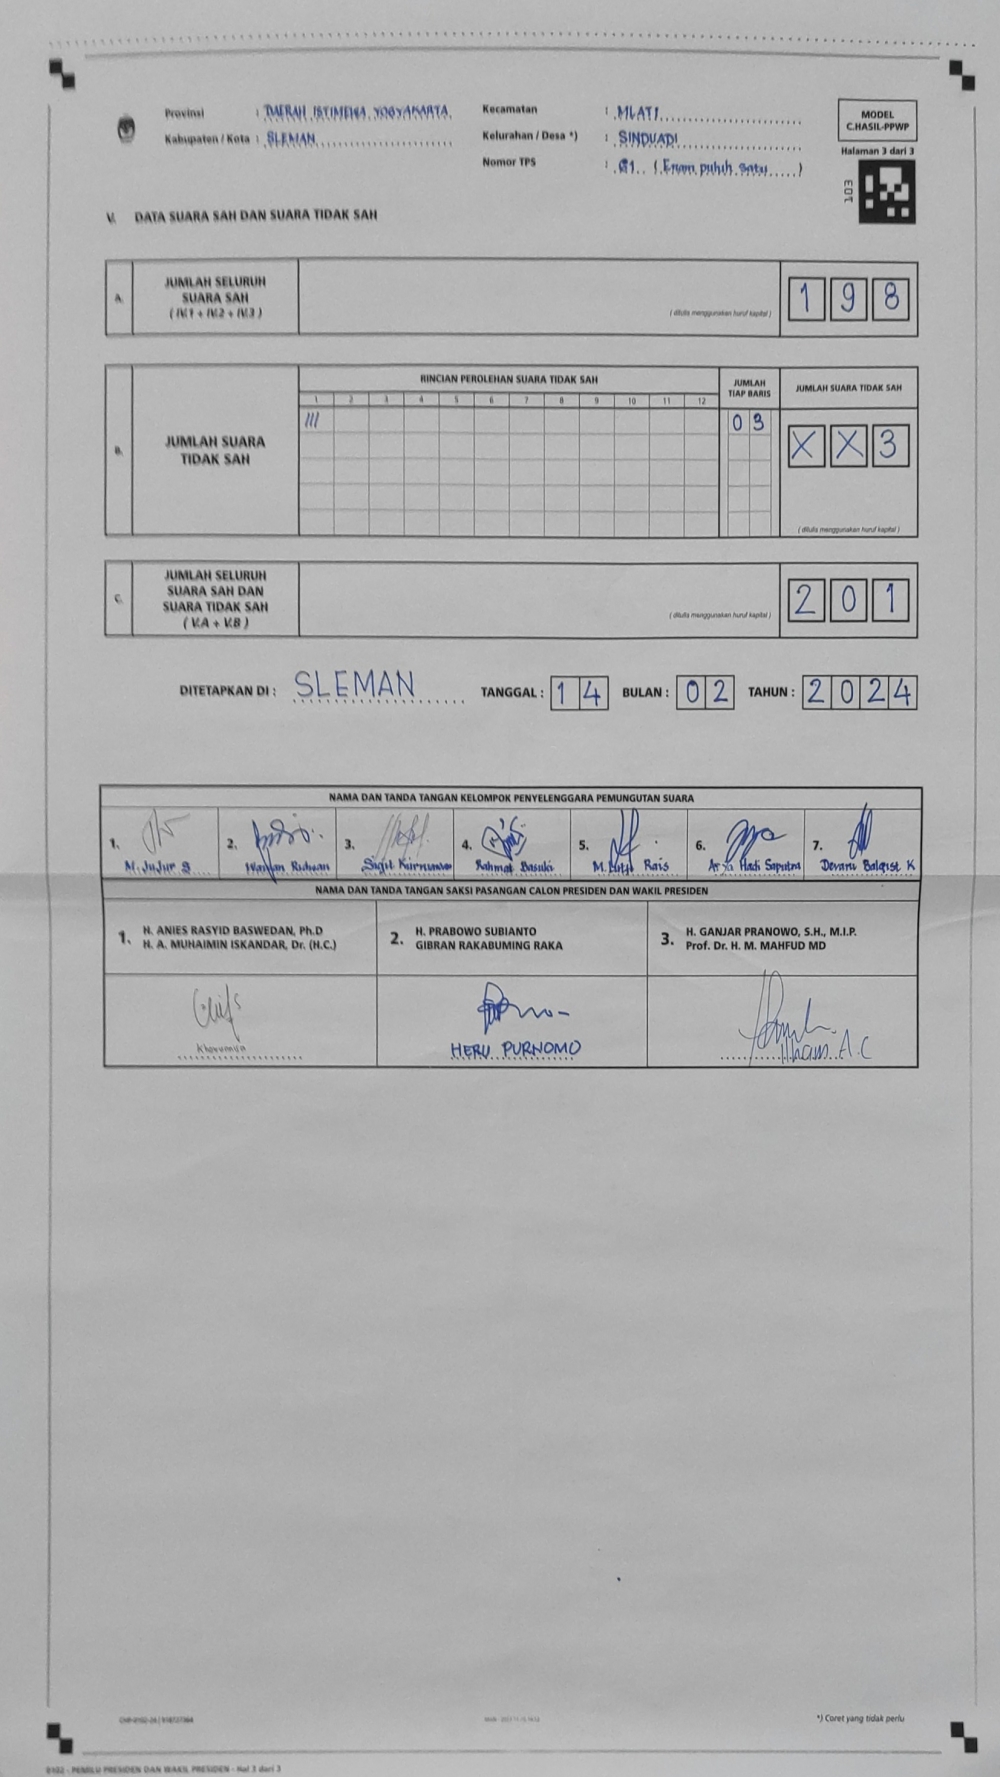 Provinsi : DAERAH ISTIMEWA YOGYAKARTA
Kabupaten / Kota : SLEMAN
Kecamatan : MLATI
Kelurahan / Desa *) : SINDUADI
Nomor TPS : 61 ( Enam puluh satu )
MODEL
C.HASIL-PPWP
Halaman 3 dari 3
V. DATA SUARA SAH DAN SUARA TIDAK SAH
A. JUMLAH SELURUH
SUARA SAH
( IV.1 + IV.2 + IV.3 )
( ditulis menggunakan huruf kapital )
1 9 8
B. JUMLAH SUARA
TIDAK SAH
RINCIAN PEROLEHAN SUARA TIDAK SAH
1 2 3 4 5 6 7 8 9 10 11 12
JUMLAH
TIAP BARIS
JUMLAH SUARA TIDAK SAH
///
0 3
X X 3
( ditulis menggunakan huruf kapital )
C. JUMLAH SELURUH
SUARA SAH DAN
SUARA TIDAK SAH
( V.A + V.B )
( ditulis menggunakan huruf kapital )
2 0 1
DITETAPKAN DI : SLEMAN TANGGAL : 1 4 BULAN : 0 2 TAHUN : 2 0 2 4
NAMA DAN TANDA TANGAN KELOMPOK PENYELENGGARA PEMUNGUTAN SUARA
1. 2. 3. 4. 5. 6. 7.
M. Jujur S
Ridwan
Sigit
Rahmat Basuki
M. Rais
Hadi Saputra
K
NAMA DAN TANDA TANGAN SAKSI PASANGAN CALON PRESIDEN DAN WAKIL PRESIDEN
1. H. ANIES RASYID BASWEDAN, Ph.D
H. A. MUHAIMIN ISKANDAR, Dr. (H.C.)
2. H. PRABOWO SUBIANTO
GIBRAN RAKABUMING RAKA
3. H. GANJAR PRANOWO, S.H., M.I.P.
Prof. Dr. H. M. MAHFUD MD
HERU PURNOMO
Ilham A.C
*) Coret yang tidak perlu
0102 - PEMILU PRESIDEN DAN WAKIL PRESIDEN - Hal 3 dari 3